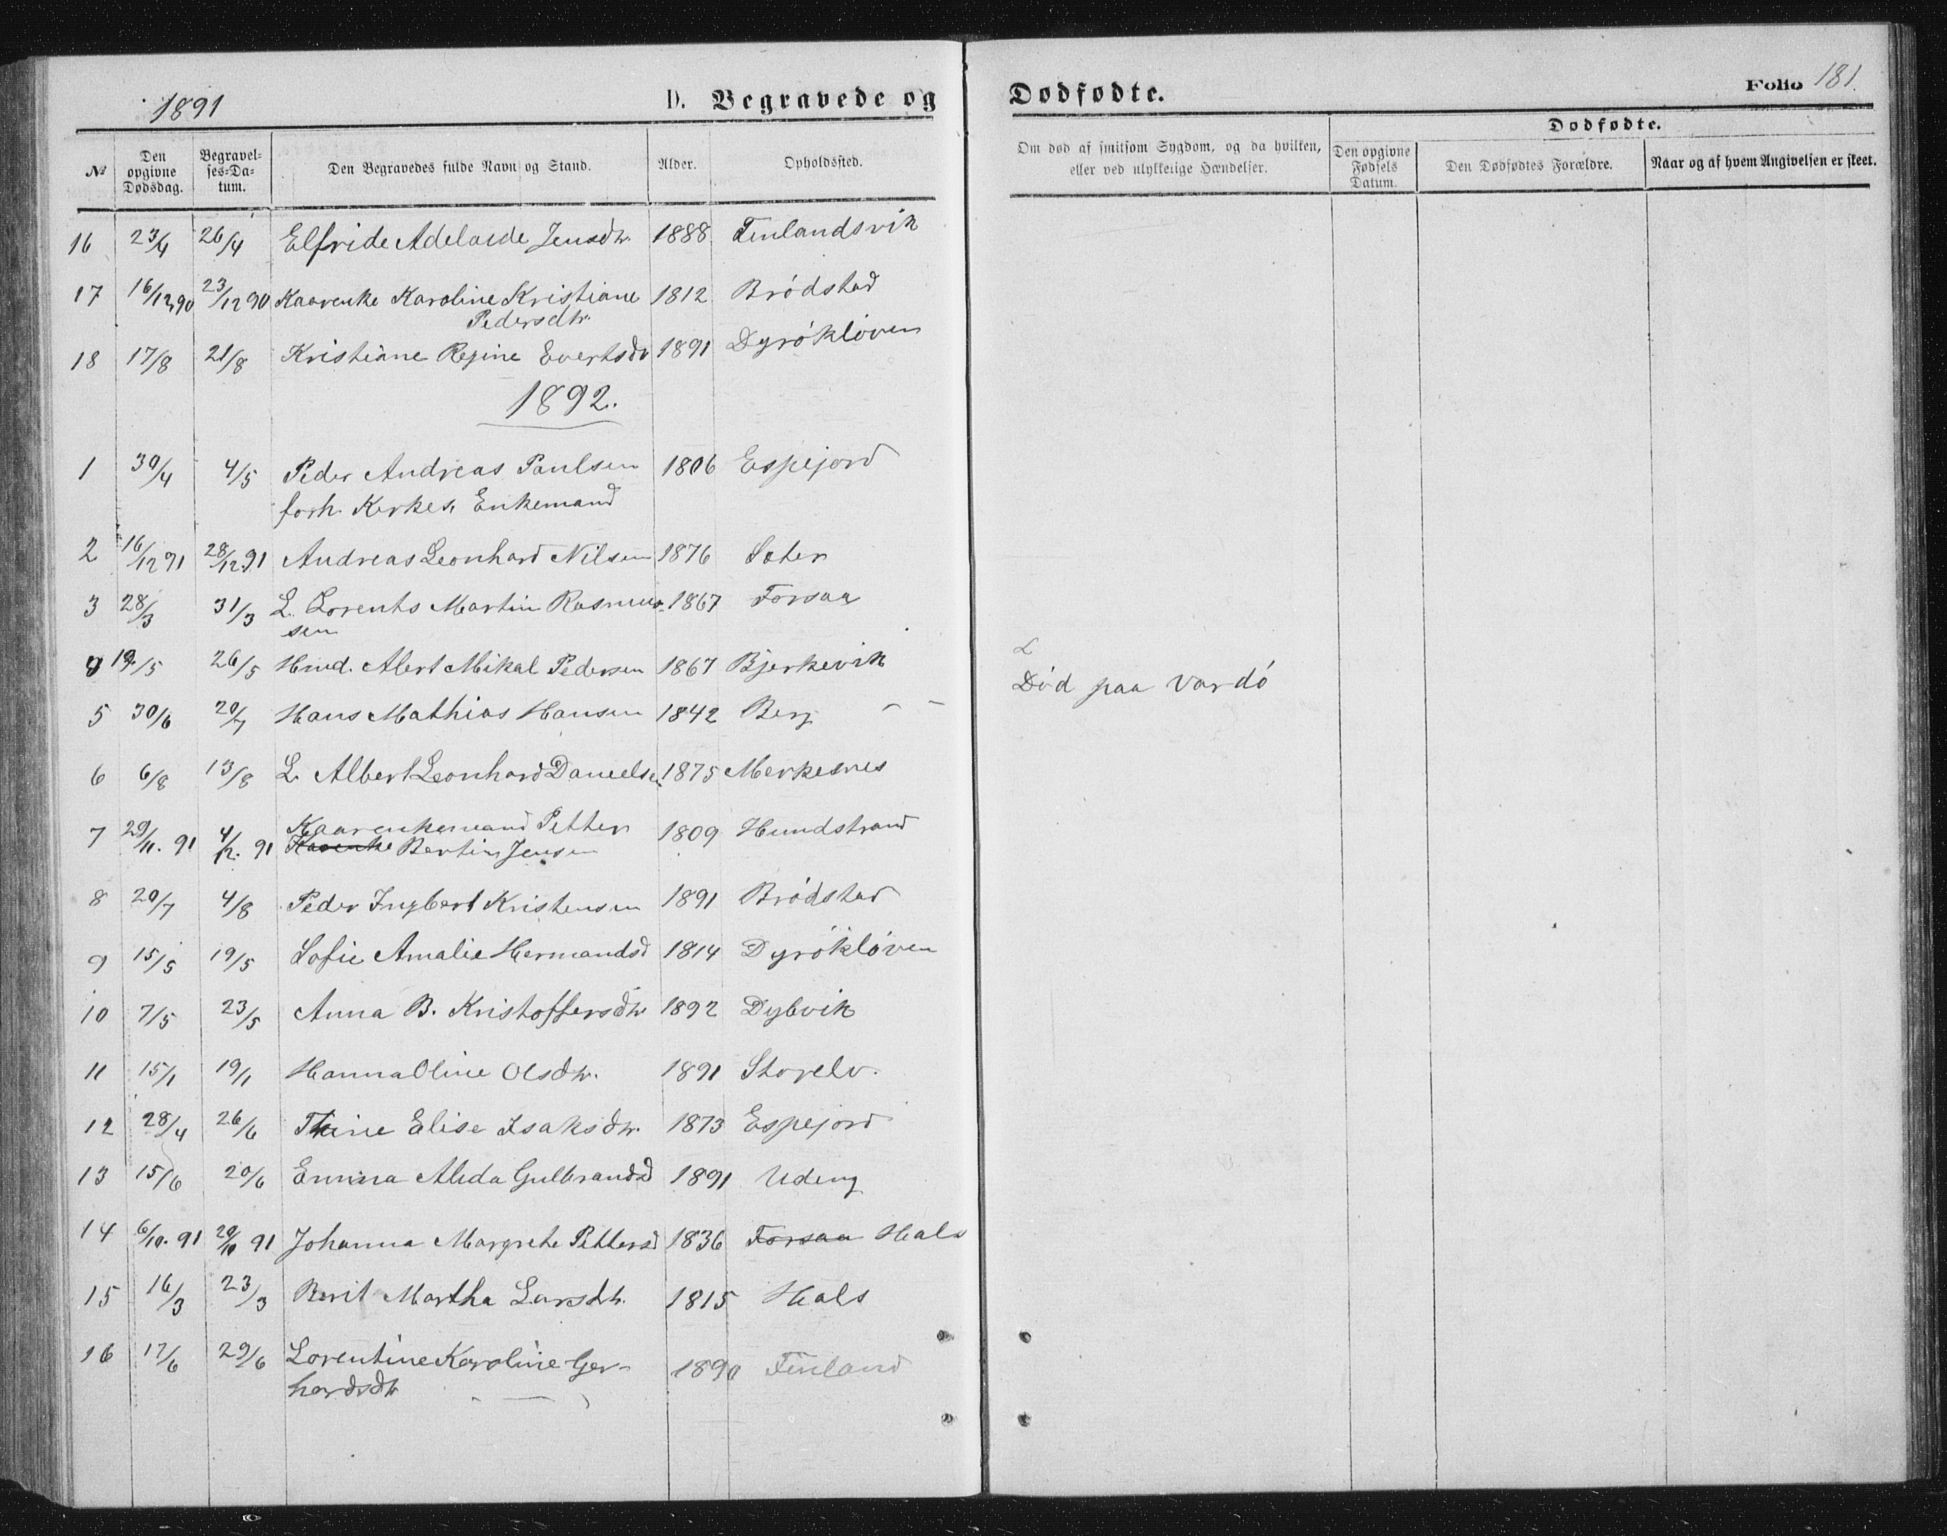 1891
D. Begravede og
Dødfødte.
Folio 181.
№ Den opgivne Dødsdag. Begravelses-Datum. Den Begravedes fulde Navn og Stand. Alder. Opholdssted.
Om død af smitsom Sygdom, og da hvilken, eller ved ulykkelige Hændelser.
Dødfødte.
Den opgivne Fødsels Datum. Den Dødfødtes Forældre. Naar og af hvem Angivelsen er skeet.
16 23/4 26/4 Elfride Adelaide Jensdtr. 1888 Finlandsvik
17 16/12 90 23/12 90 Kaarenke Karoline Kristiane 1812 Brødstad
Pedersdtr.
18 17/8 21/8 Kristiane Regine Evertsdtr 1891 Dyrøkløven
1892.
1 30/4 4/5 Peder Andreas Paulsen 1806 Espejord
forh. Kirkes. Enkemand
2 16/12 91 28/12 91 Andreas Leonhard Nilsen 1876 Sæter
3 28/3 31/3 L. Lorents Martin Rasmus- 1867 Forsaa
sen
4 19/5 26/5 Hmd. Albert Mikal Pedersen 1867 Bjerkevik
Død paa Vardø
5 30/6 20/7 Hans Mathias Hansen 1842 Berg
6 6/8 13/8 L. Albert Leonhard Danielsen 1875 Merkesnes
7 29/11. 91 4/12. 91 Kaarenkemand Petter 1809 Hundstrand
Kaarenke Bertin Jensen
8 20/7 4/8 Peder Ingbert Kristensen 1891 Brødstad
9 15/5 19/5 Sofie Amalie Hermandsd 1814 Dyrøkløven
10 7/5 23/5 Anna B. Kristoffersdtr 1892 Dybvik
11 15/1 19/1 Hanna Oline Olsdtr. 1891 Storelv.
12 28/4 26/6 Trine Elise Isaksdtr. 1873 Espejord
13 15/6 20/6 Emma Alida Gulbrandsd 1891 Udeng
14 6/10. 91 20/10 91 Johanna Margrethe Pettersd 1836 Forsaa Hals
15 16/3 23/3 Berit Martha Larsdtr. 1815 Hals
16 17/6 29/6 Lorentine Karoline Ger- 1890 Finland
hardsdtr